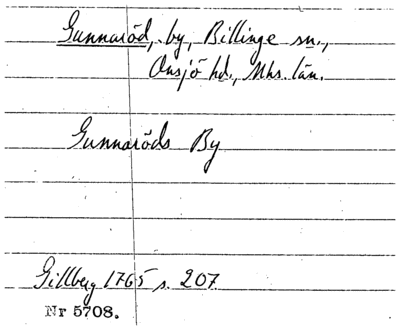 Gunnaröd, by, Billinge sn.,
Onsjö hd., Mhs. län.
Gunnaröds By
Gillberg 1765 s. 207.
Nr 5708.